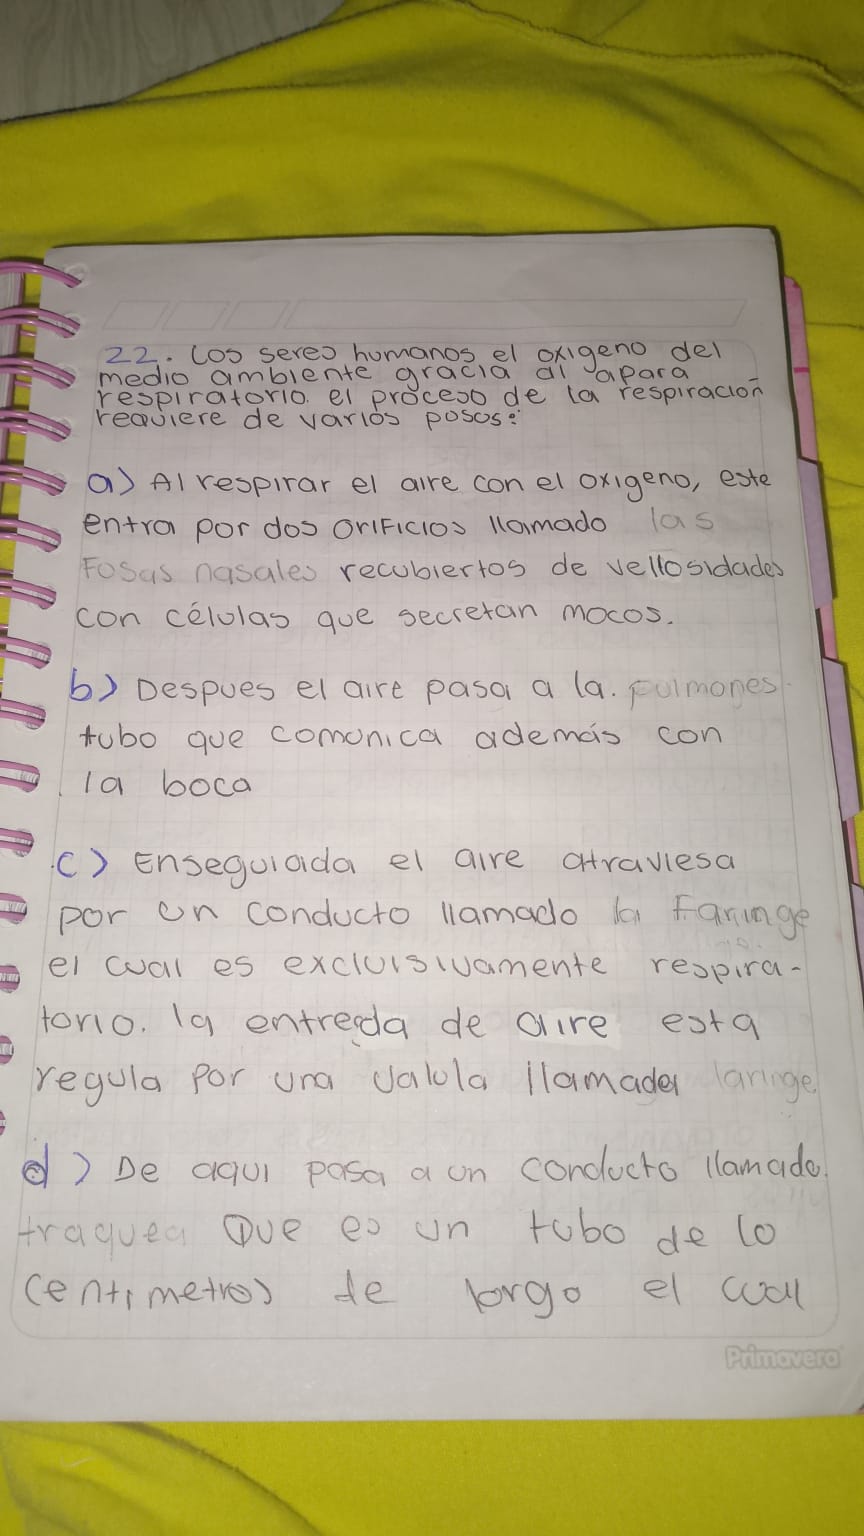 22. Los seres humanos el oxigeno del
medio ambiente gracia al apara
respiratorio. el proceso de la respiración
requiere de varios posos:
a) Al respirar el aire con el oxigeno, este
entra por dos oriFicios llamado las
Fosas nasales recubiertos de vellosidades
con células que secretan mocos.
b) Despues el aire pasa a la. pulmones.
tubo que comunica además con
la boca
c) Enseguiada el aire atraviesa
por un conducto llamado la Faringe
el cual es excluisivamente respira-
torio. la entreda de aire esta
regula por una valula llamada laringe
d) De aqui pasa a un conducto llamado.
traquea Que es un tubo de 10
centimetros de largo el cual
Primavera